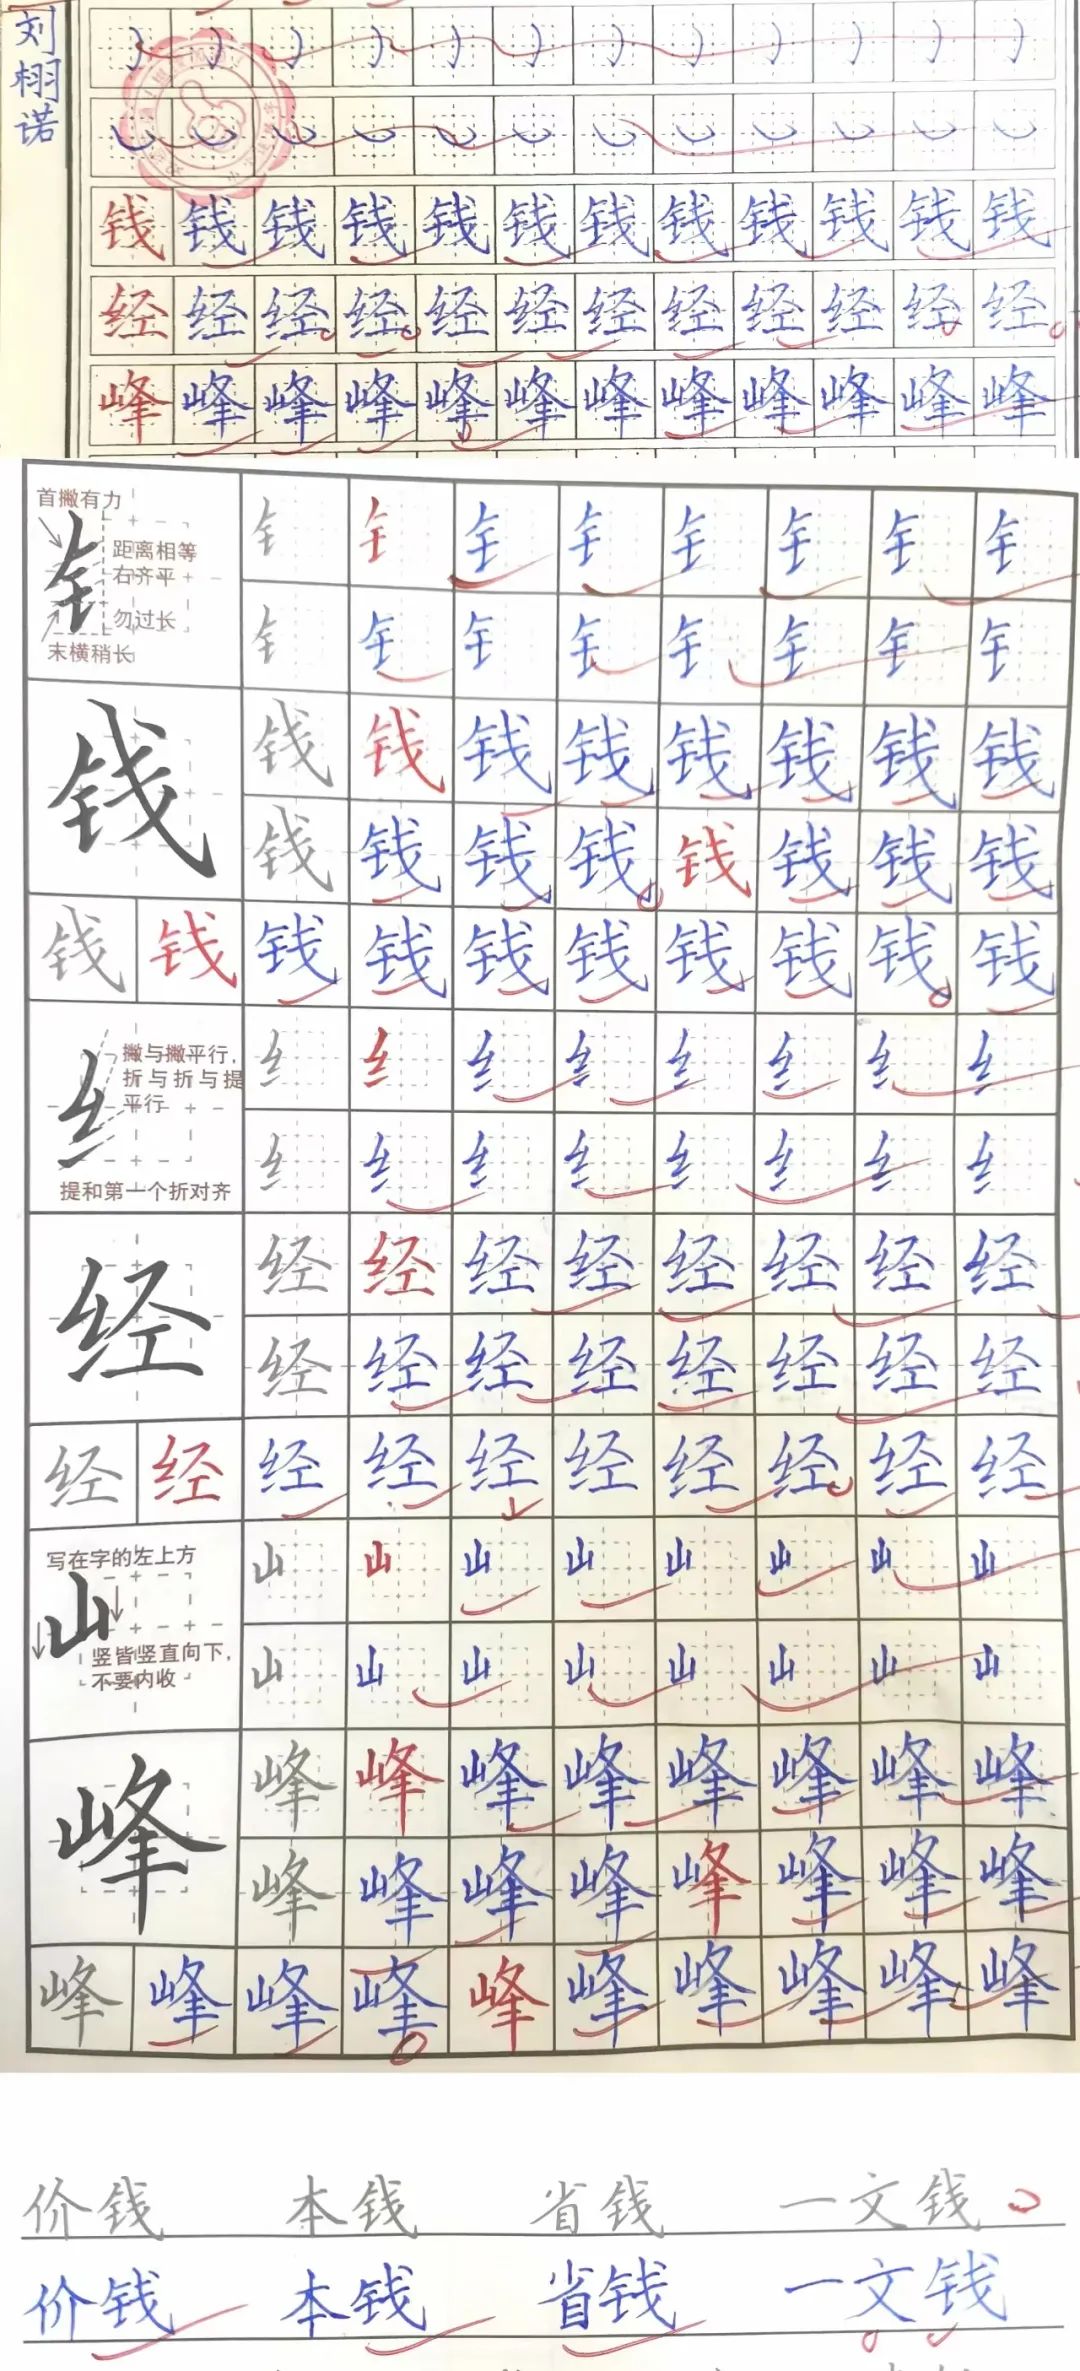 刘栩诺
钱钱钱钱钱钱钱钱钱钱钱钱
经经经经经经经经经经经经
峰峰峰峰峰峰峰峰峰峰峰峰
首撇有力
钅
距离相等
右齐平
勿过长
末横稍长
钅钅钅钅钅钅钅钅
钅钅钅钅钅钅钅钅
钱
钱钱钱钱钱钱钱钱
钱钱钱钱钱钱钱钱
钱钱钱钱钱钱钱钱钱钱
纟
撇与撇平行，
折与折与提
平行
提和第一个折对齐
纟纟纟纟纟纟纟纟
纟纟纟纟纟纟纟纟
经
经经经经经经经经
经经经经经经经经
经经经经经经经经经经
写在字的左上方
山
竖皆竖直向下，
不要内收
山山山山山山山山
山山山山山山山山
峰
峰峰峰峰峰峰峰峰
峰峰峰峰峰峰峰峰
峰峰峰峰峰峰峰峰峰峰
价钱 本钱 省钱 一文钱
价钱 本钱 省钱 一文钱